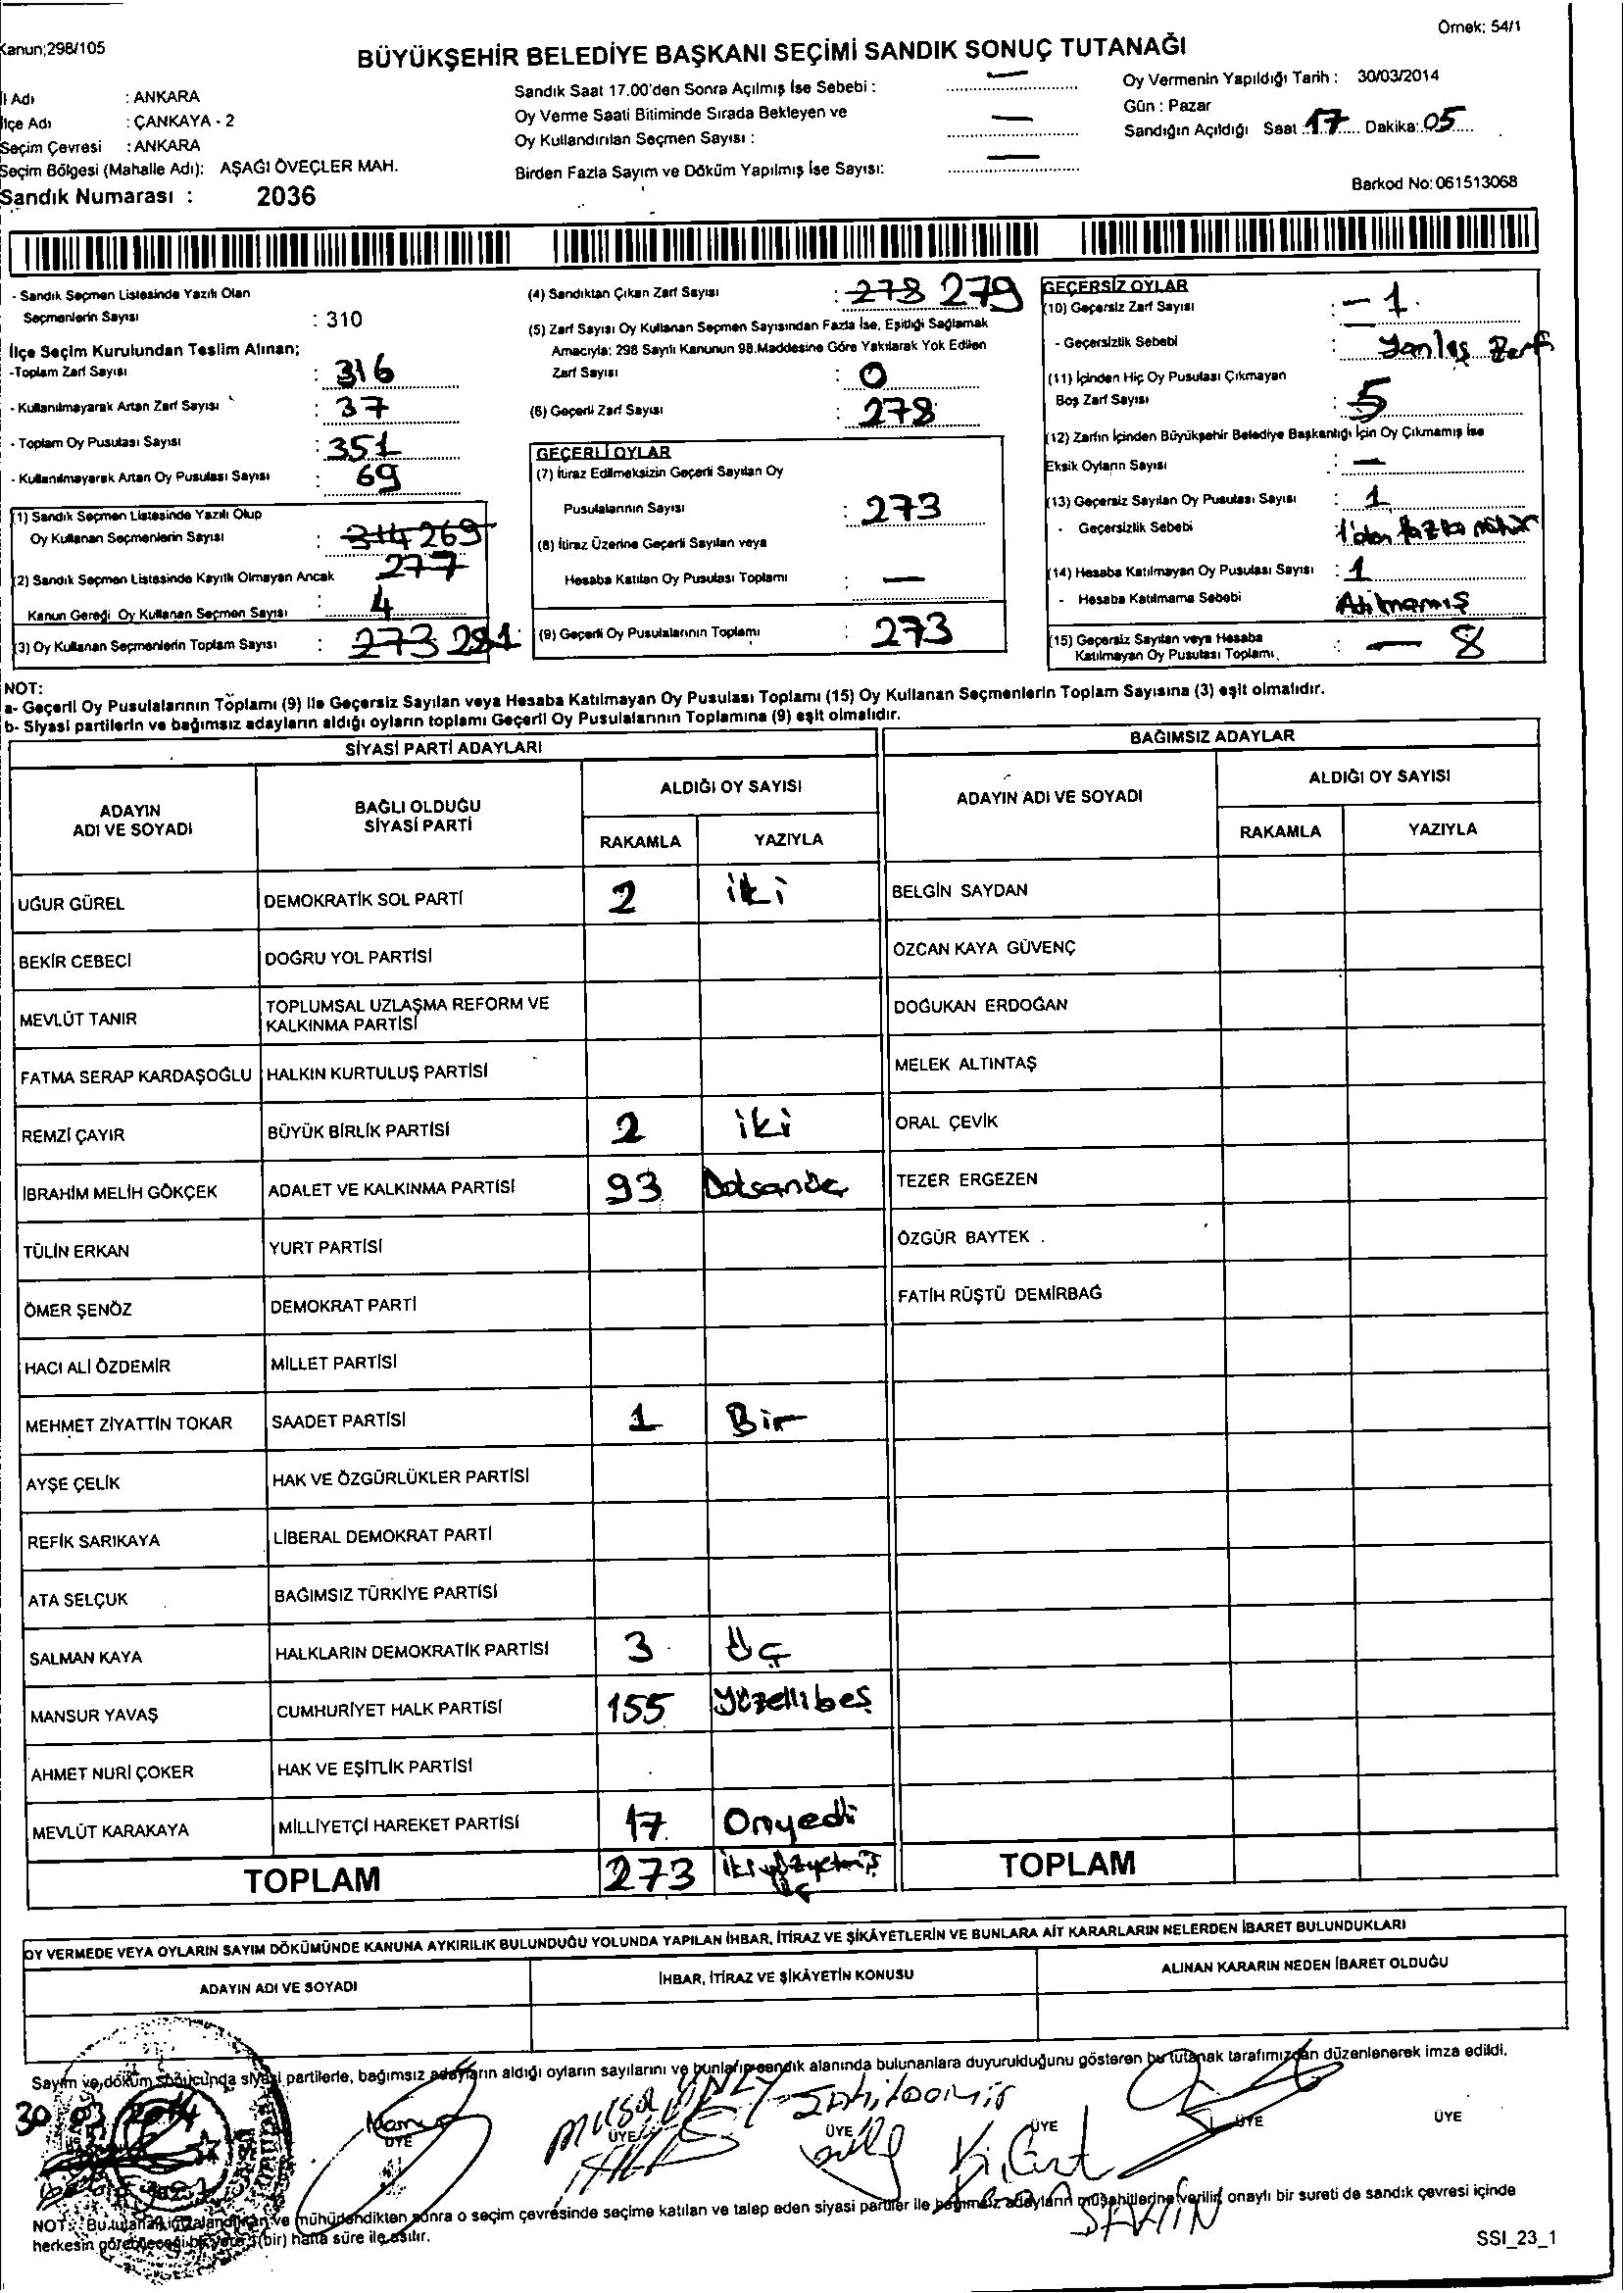 Örnek: 54/1
Kanun;298/105
BÜYÜKŞEHİR BELEDİYE BAŞKANI SEÇİMİ SANDIK SONUÇ TUTANAĞI
İl Adı : ANKARA
İlçe Adı : ÇANKAYA - 2
Seçim Çevresi : ANKARA
Seçim Bölgesi (Mahalle Adı): AŞAĞI ÖVEÇLER MAH.
Sandık Numarası : 2036
Sandık Saat 17.00'den Sonra Açılmış İse Sebebi : —
Oy Verme Saati Bitiminde Sırada Bekleyen ve
Oy Kullandırılan Seçmen Sayısı : —
Birden Fazla Sayım ve Döküm Yapılmış İse Sayısı: —
Oy Vermenin Yapıldığı Tarih : 30/03/2014
Gün : Pazar
Sandığın Açıldığı Saat 17 Dakika: 05
Barkod No: 061513068
- Sandık Seçmen Listesinde Yazılı Olan
Seçmenlerin Sayısı : 310
İlçe Seçim Kurulundan Teslim Alınan;
-Toplam Zarf Sayısı : 316
- Kullanılmayarak Artan Zarf Sayısı : 37
- Toplam Oy Pusulası Sayısı : 351
- Kullanılmayarak Artan Oy Pusulası Sayısı : 69
(1) Sandık Seçmen Listesinde Yazılı Olup
Oy Kullanan Seçmenlerin Sayısı : 314 269
277
(2) Sandık Seçmen Listesinde Kayıtlı Olmayan Ancak
Kanun Gereği Oy Kullanan Seçmen Sayısı : 4
(3) Oy Kullanan Seçmenlerin Toplam Sayısı : 273 281
(4) Sandıktan Çıkan Zarf Sayısı : 278 279
(5) Zarf Sayısı Oy Kullanan Seçmen Sayısından Fazla İse, Eşitliği Sağlamak
Amacıyla; 298 Sayılı Kanunun 98.Maddesine Göre Yakılarak Yok Edilen
Zarf Sayısı : 0
(6) Geçerli Zarf Sayısı : 278
GEÇERLİ OYLAR
(7) İtiraz Edilmeksizin Geçerli Sayılan Oy
Pusulalarının Sayısı : 273
(8) İtiraz Üzerine Geçerli Sayılan veya
Hesaba Katılan Oy Pusulası Toplamı : —
(9) Geçerli Oy Pusulalarının Toplamı : 273
GEÇERSİZ OYLAR
(10) Geçersiz Zarf Sayısı : — 1
- Geçersizlik Sebebi : Yanlış Zarf
(11) İçinden Hiç Oy Pusulası Çıkmayan
Boş Zarf Sayısı : 5
(12) Zarfın İçinden Büyükşehir Belediye Başkanlığı İçin Oy Çıkmamış İse
Eksik Oyların Sayısı : —
(13) Geçersiz Sayılan Oy Pusulası Sayısı : 1
- Geçersizlik Sebebi 1'den fazla mühür
(14) Hesaba Katılmayan Oy Pusulası Sayısı : 1
- Hesaba Katılmama Sebebi Atılmamış
(15) Geçersiz Sayılan veya Hesaba
Katılmayan Oy Pusulası Toplamı : — 8
NOT:
a- Geçerli Oy Pusulalarının Toplamı (9) ile Geçersiz Sayılan veya Hesaba Katılmayan Oy Pusulası Toplamı (15) Oy Kullanan Seçmenlerin Toplam Sayısına (3) eşit olmalıdır.
b- Siyasi partilerin ve bağımsız adayların aldığı oyların toplamı Geçerli Oy Pusulalarının Toplamına (9) eşit olmalıdır.
SİYASİ PARTİ ADAYLARI
ADAYIN ADI VE SOYADI
BAĞLI OLDUĞU SİYASİ PARTİ
ALDIĞI OY SAYISI
RAKAMLA YAZIYLA
UĞUR GÜREL DEMOKRATİK SOL PARTİ 2 iki
BEKİR CEBECİ DOĞRU YOL PARTİSİ
MEVLÜT TANIR TOPLUMSAL UZLAŞMA REFORM VE KALKINMA PARTİSİ
FATMA SERAP KARDAŞOĞLU HALKIN KURTULUŞ PARTİSİ
REMZİ ÇAYIR BÜYÜK BİRLİK PARTİSİ 2 iki
İBRAHİM MELİH GÖKÇEK ADALET VE KALKINMA PARTİSİ 93
TÜLİN ERKAN YURT PARTİSİ
ÖMER ŞENÖZ DEMOKRAT PARTİ
HACI ALİ ÖZDEMİR MİLLET PARTİSİ
MEHMET ZİYATTİN TOKAR SAADET PARTİSİ 1 Bir
AYŞE ÇELİK HAK VE ÖZGÜRLÜKLER PARTİSİ
REFİK SARIKAYA LİBERAL DEMOKRAT PARTİ
ATA SELÇUK BAĞIMSIZ TÜRKİYE PARTİSİ
SALMAN KAYA HALKLARIN DEMOKRATİK PARTİSİ 3 Üç
MANSUR YAVAŞ CUMHURİYET HALK PARTİSİ 155 Yüzellibeş
AHMET NURİ ÇOKER HAK VE EŞİTLİK PARTİSİ
MEVLÜT KARAKAYA MİLLİYETÇİ HAREKET PARTİSİ 17 Onyedi
TOPLAM 273 ikiyüzyetmiş üç
BAĞIMSIZ ADAYLAR
ADAYIN ADI VE SOYADI
ALDIĞI OY SAYISI
RAKAMLA YAZIYLA
BELGİN SAYDAN
ÖZCAN KAYA GÜVENÇ
DOĞUKAN ERDOĞAN
MELEK ALTINTAŞ
ORAL ÇEVİK
TEZER ERGEZEN
ÖZGÜR BAYTEK
FATİH RÜŞTÜ DEMİRBAĞ
TOPLAM
OY VERMEDE VEYA OYLARIN SAYIM DÖKÜMÜNDE KANUNA AYKIRILIK BULUNDUĞU YOLUNDA YAPILAN İHBAR, İTİRAZ VE ŞİKÂYETLERİN VE BUNLARA AİT KARARLARIN NELERDEN İBARET BULUNDUKLARI
ADAYIN ADI VE SOYADI İHBAR, İTİRAZ VE ŞİKÂYETİN KONUSU ALINAN KARARIN NEDEN İBARET OLDUĞU
Sayım ve döküm sonucunda siyasi partilerle, bağımsız adayların aldığı oyların sayılarını ve bunların sandık alanında bulunanlara duyurulduğunu gösteren bu tutanak tarafımızdan düzenlenerek imza edildi.
30 03 2014
ÜYE ÜYE ÜYE ÜYE ÜYE ÜYE
ŞAHİN
NOT: Bu tutanak imzalandıktan ve mühürlendikten sonra o seçim çevresinde seçime katılan ve talep eden siyasi partiler ile bağımsız adayların müşahitlerine verilir, onaylı bir sureti de sandık çevresi içinde
herkesin görebileceği bir yere 1(bir) hafta süre ile asılır.
SSI_23_1